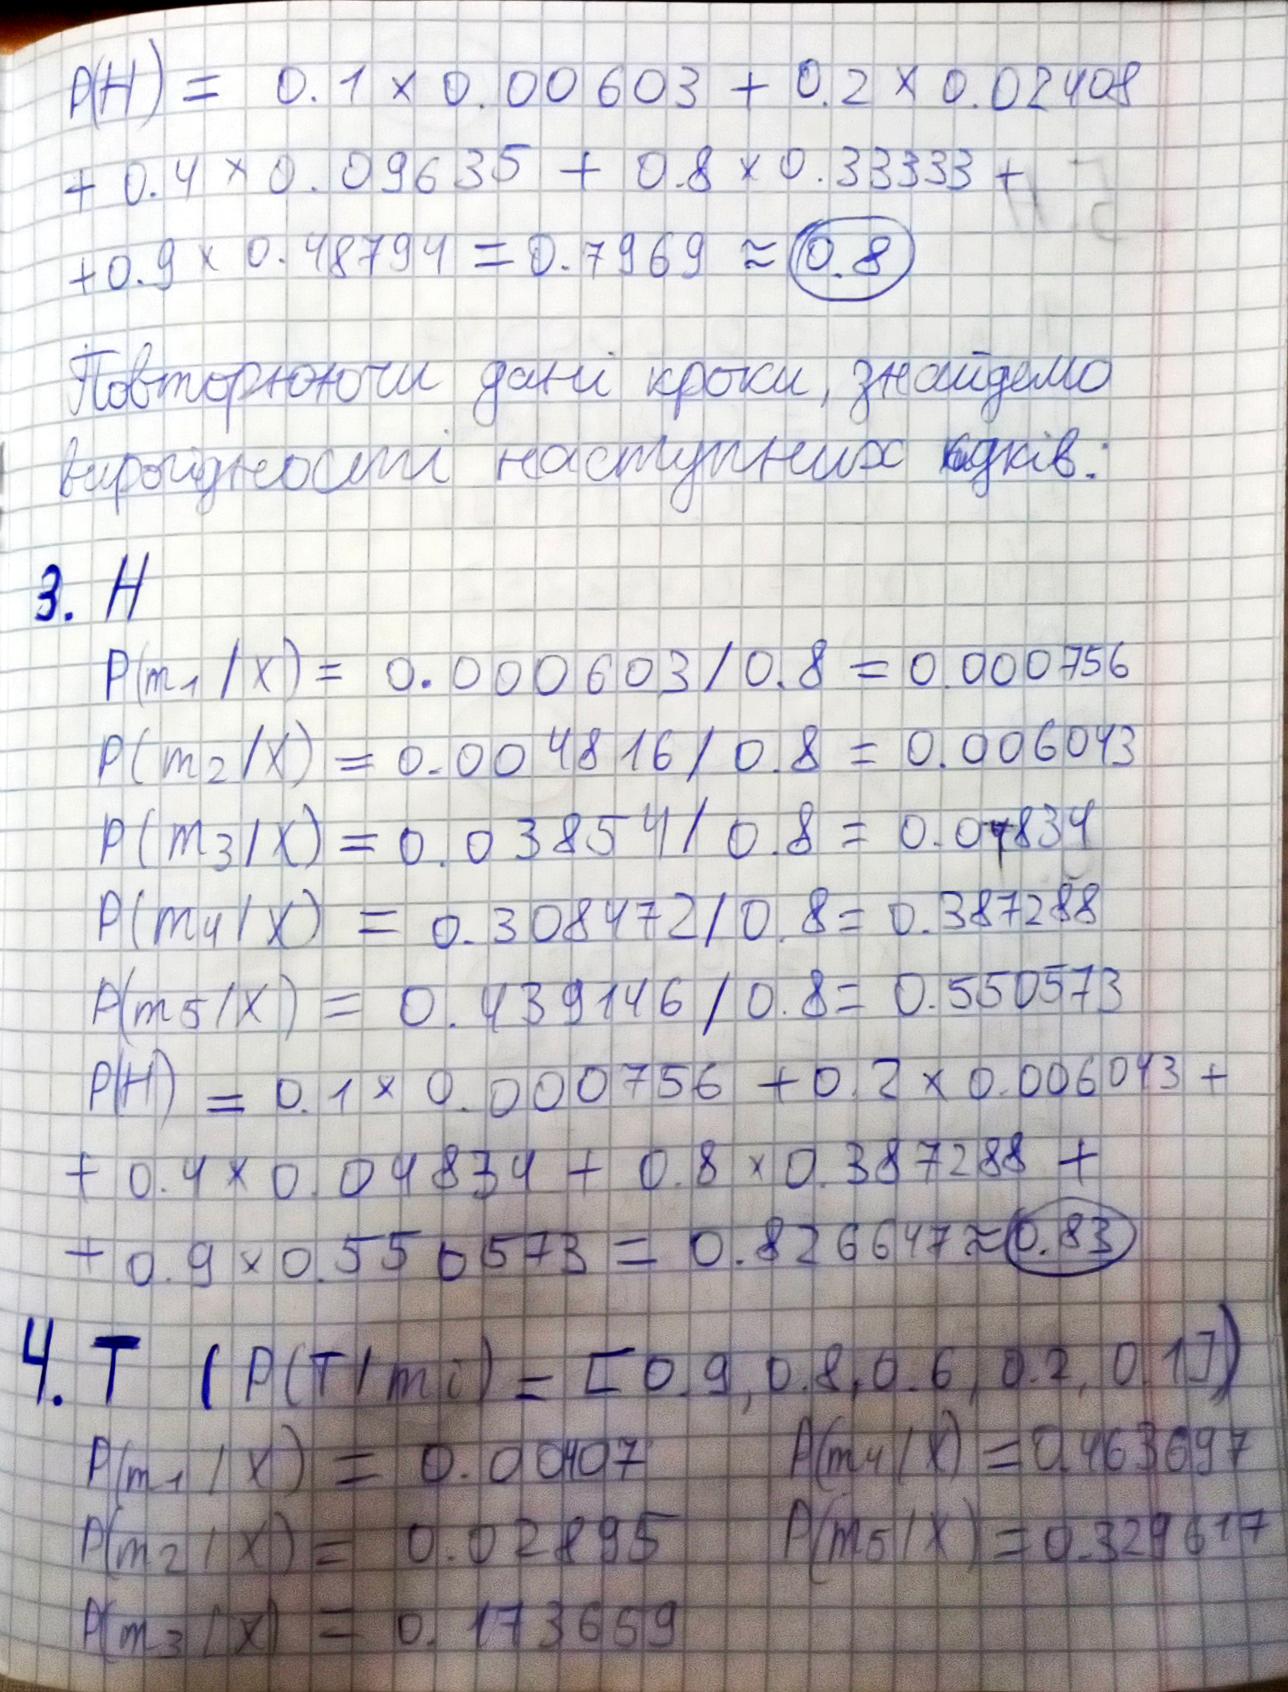 P(H) = 0.1 × 0.00603 + 0.2 × 0.02408
+ 0.4 × 0.09635 + 0.8 × 0.33333 +
+ 0.9 × 0.48794 = 0.7969 ≈ 0.8
Повторюючи дані кроки, знайдемо
вирогідності наступних кидків:
3. H
P(m1/X) = 0.000603/0.8 = 0.000756
P(m2/X) = 0.004816/0.8 = 0.006043
P(m3/X) = 0.03854/0.8 = 0.04834
P(m4/X) = 0.308472/0.8 = 0.387288
P(m5/X) = 0.439146/0.8 = 0.550573
P(H) = 0.1 × 0.000756 + 0.2 × 0.006043 +
+ 0.4 × 0.04834 + 0.8 × 0.387288 +
+ 0.9 × 0.550573 = 0.826647 ≈ 0.83
4. T (P(T/mi) = [0.9, 0.8, 0.6, 0.2, 0.1])
P(m1/X) = 0.00407 P(m4/X) = 0.463697
P(m2/X) = 0.02895 P(m5/X) = 0.329617
P(m3/X) = 0.173659